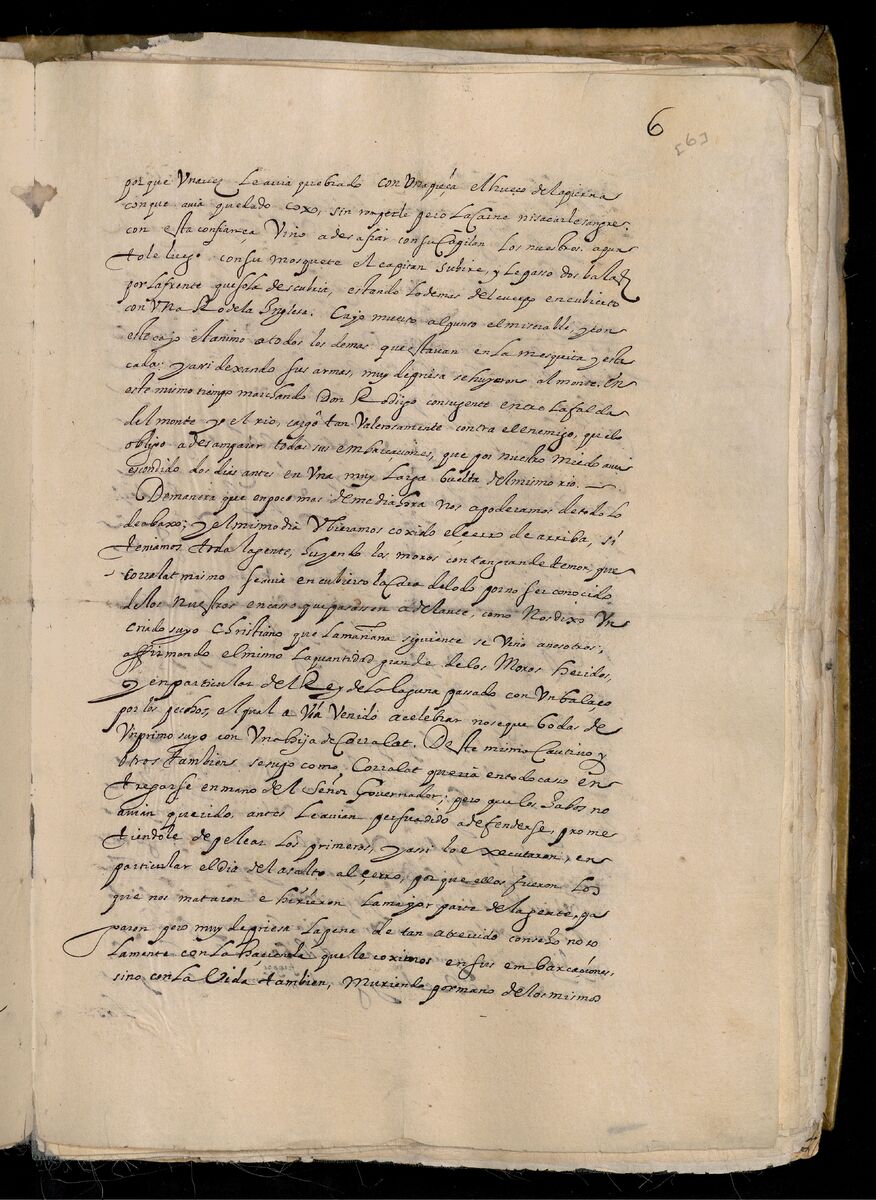 6
693
porque Una uez le auia quebrado con Una pieça el hueço de la pierna
con que auia quedado coxo, sin romperle pero la carne ni sacarle sangre.
con esta confiança Vino a desafiar con su Cãpilan los nuestros. apun
tole luego con su mosquete el capitan Subire, y le passo dos balas
por la frente que solo descubria, estando lo demas del cuerpo encubierto
con Una Rodela Inglesa. Cayo muerto al punto el miserable, y con
este cayo el animo a todos los demas que estauan en la mesquita y esta
cada: y assi dexando sus armas, muy de priesa se huyeron al monte. En
este mismo tiempo marchando Don Rodrigo con su gente entre la falda
del monte y el rio, cargò tan Valerosamente contra el enemigo, que lo
obligo a desamparar todas sus embarcaciones, que por nuestro miedo auia
escondido dos dias antes en Una muy larga buelta del mismo rio.
Demanera que en poco mas de media hora nos apoderamos de todo lo
de abaxo; y el mismo dia Vbieramos coxido el çerro de arriba, si
teniamos toda la gente, huyendo los moros con tan grande temor, que
Corralat mismo seguia encubierto la Cara de lodo por no ser conocido
de los nuestros en caso que pasassen adelante, como Nos dixo Un
criado suyo Christiano que la mañana siguiente se Vino a nosotros,
affirmando el mismo la quantidad grande de los Moros heridos,
y en particular del Rey de la laguna pasado con Un balaço
por los pechos, el qual a Via Venido a celebrar no se que bodas de
Un primo suyo con Una hija de Corralat. De este mismo Cautiuo y
otros tambien se supo como Corralat queria en todo caso en
tregarse en mano del Señor Gouernador; pero que los Jabos no
auian querido, antes le auian persuadido a defenderse, prome
tiendole de pelear los primeros, y assi lo exècutaron, en
particular el dia del asalto al çerro, porque ellos fueron los
que nos mataron e hirieron la mayor parte de la gente, pa
garon pero muy de priesa la pena de tan atreuido consejo no so
lamente con la haçienda que le coximos en sus embarcaciones,
sino con la Vida tambien, muriendo por mano de los mismos